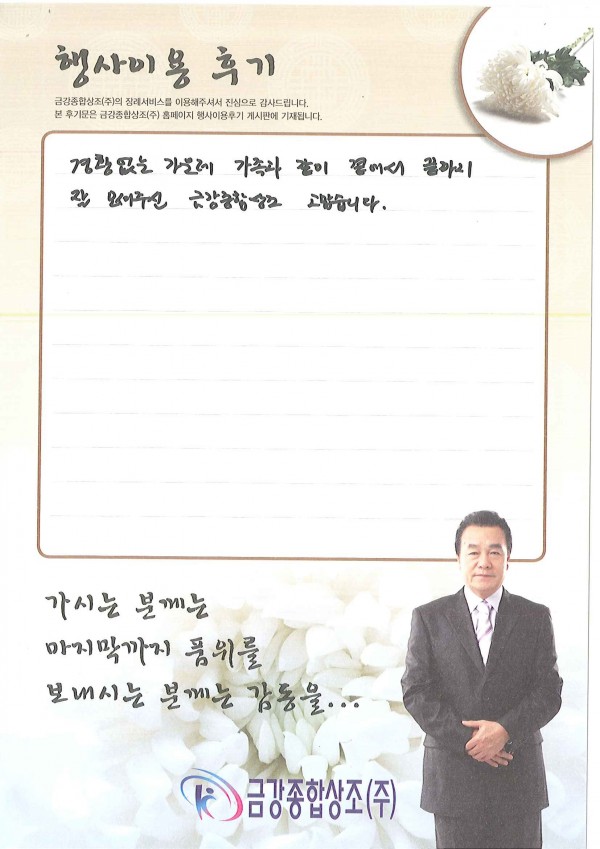 행사이용 후기
금강종합상조(주)의 장례서비스를 이용해주셔서 진심으로 감사드립니다.
본 후기문은 금강종합상조(주) 홈페이지 행사이용후기 게시판에 기재됩니다.
경황없는 가운데 가족과 같이 곁에서 끝까지
잘 모셔주신 금강종합상조 고맙습니다.
가시는 분께는
마지막까지 품위를
보내시는 분께는 감동을...
금강종합상조(주)